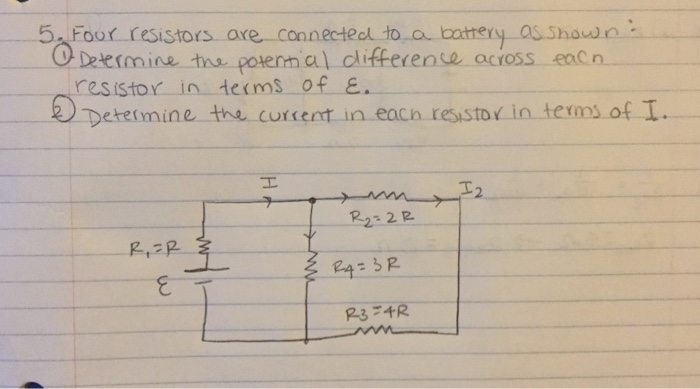 5. Four resistors are connected to a battery as shown:
① Determine the potential difference across each
resistor in terms of ε.
② Determine the current in each resistor in terms of I.
I
I2
R2=2R
R1=R
R4=3R
ε
R3=4R